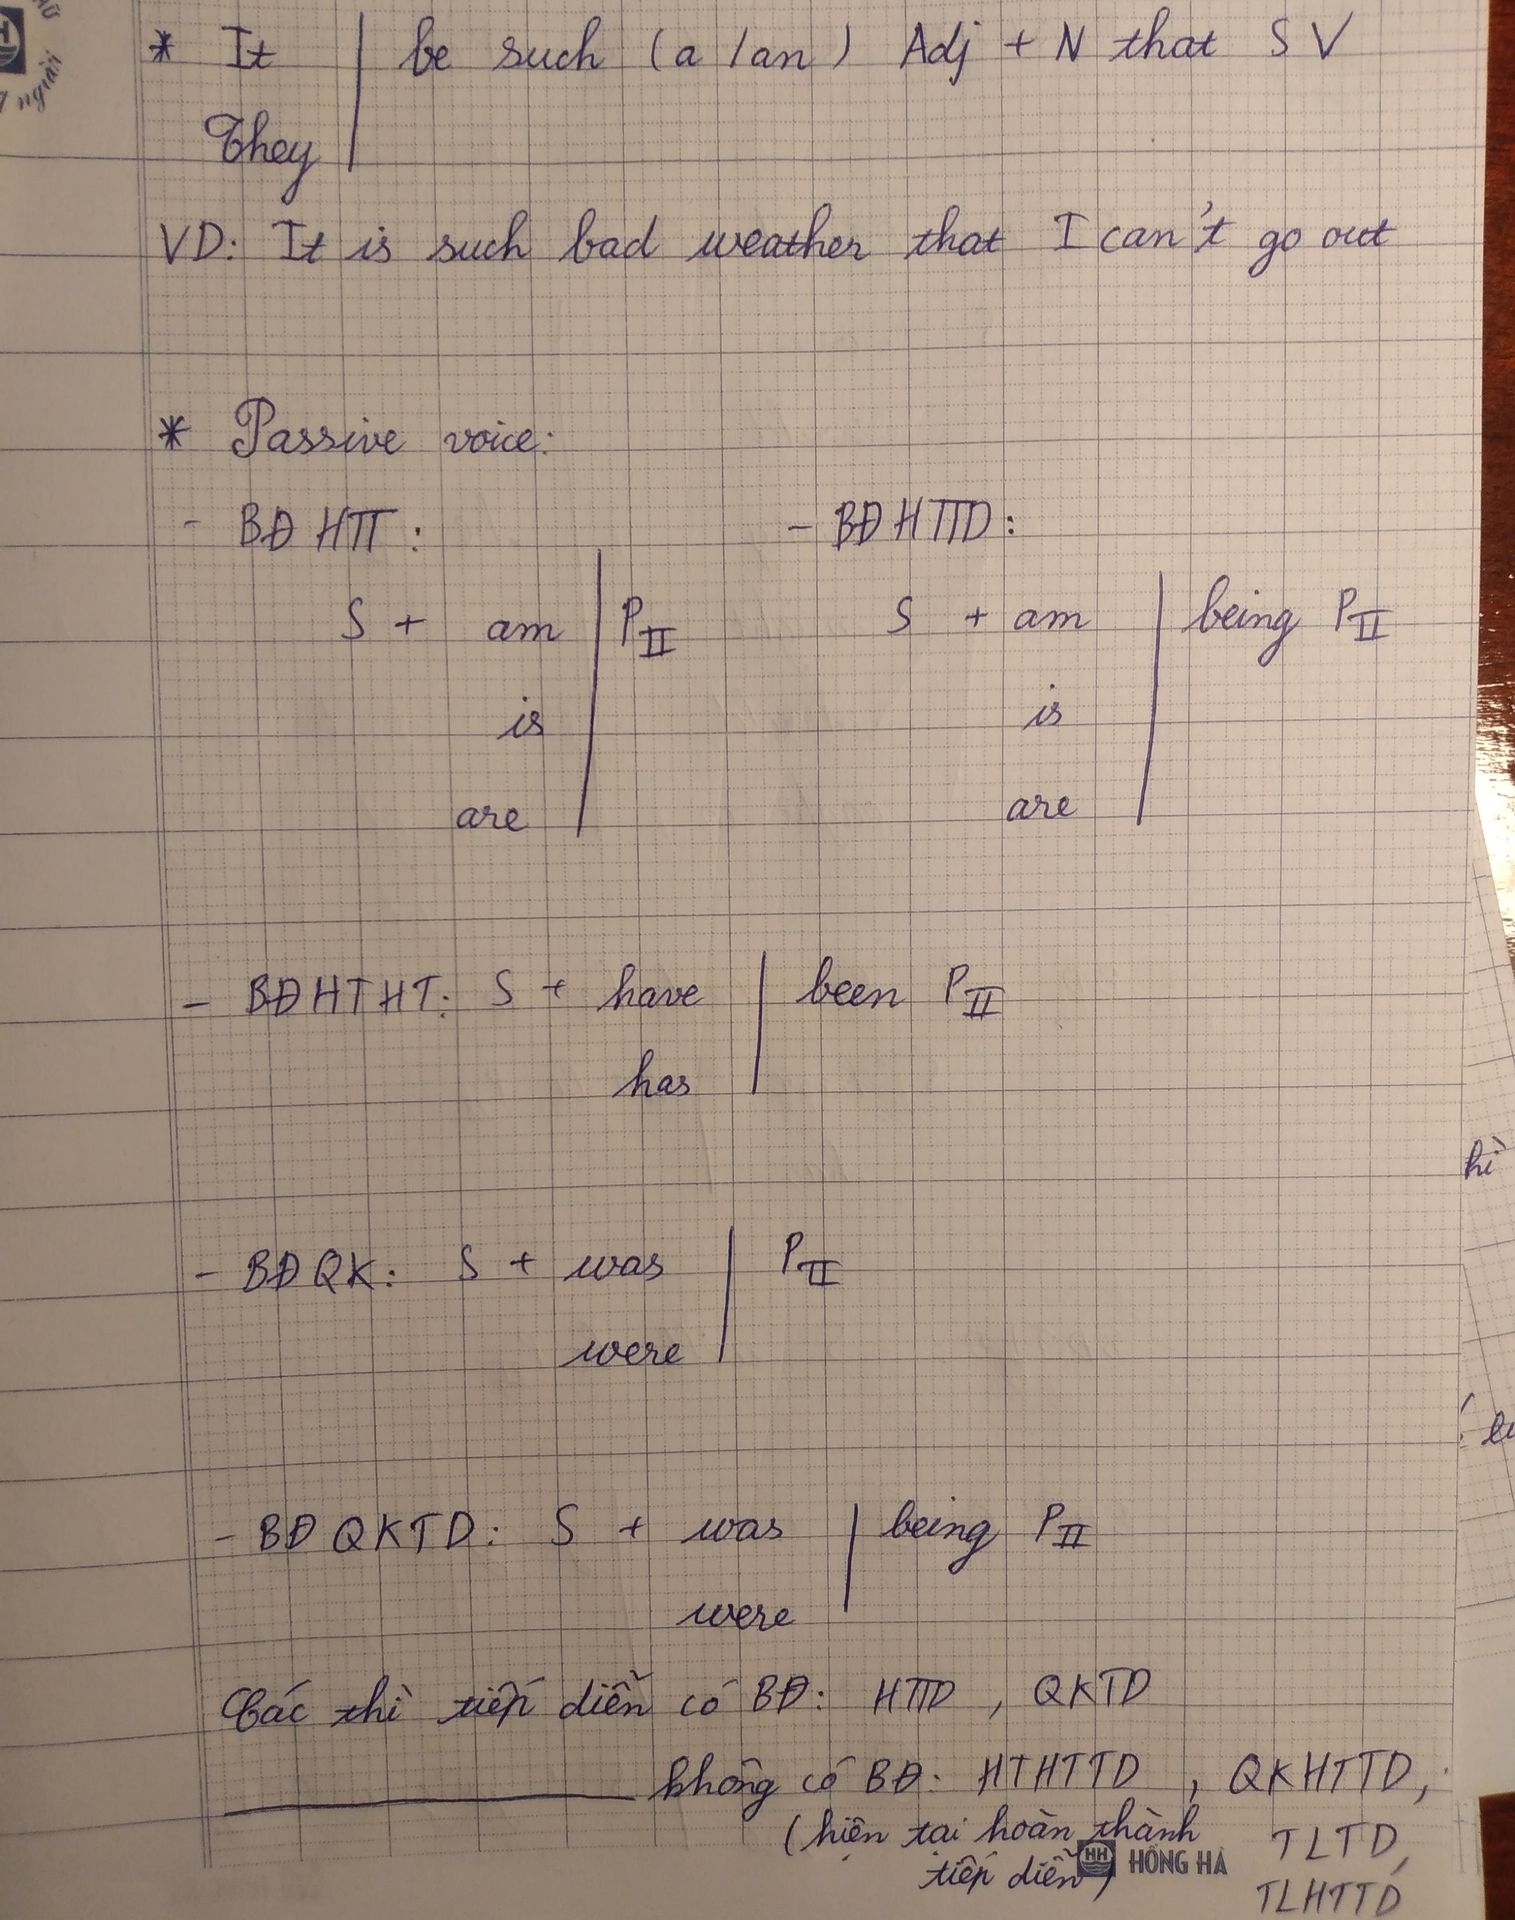 * It | be such (a / an) Adj + N that S V
They
VD: It is such bad weather that I can't go out
* Passive voice:
- BĐ HTT:
S + am | PII
is
are
- BĐ HTTD:
S + am | being PII
is
are
- BĐHTHT: S + have | been PII
has
- BĐQK: S + was | PII
were
- BĐ QKTD: S + was | being PII
were
Các thì tiếp diễn có BĐ: HTTD, QKTD
không có BĐ: HTHTTD, QKHTTD,
(hiện tại hoàn thành TLTD,
tiếp diễn) TLHTTD
HH HỒNG HÀ
hì